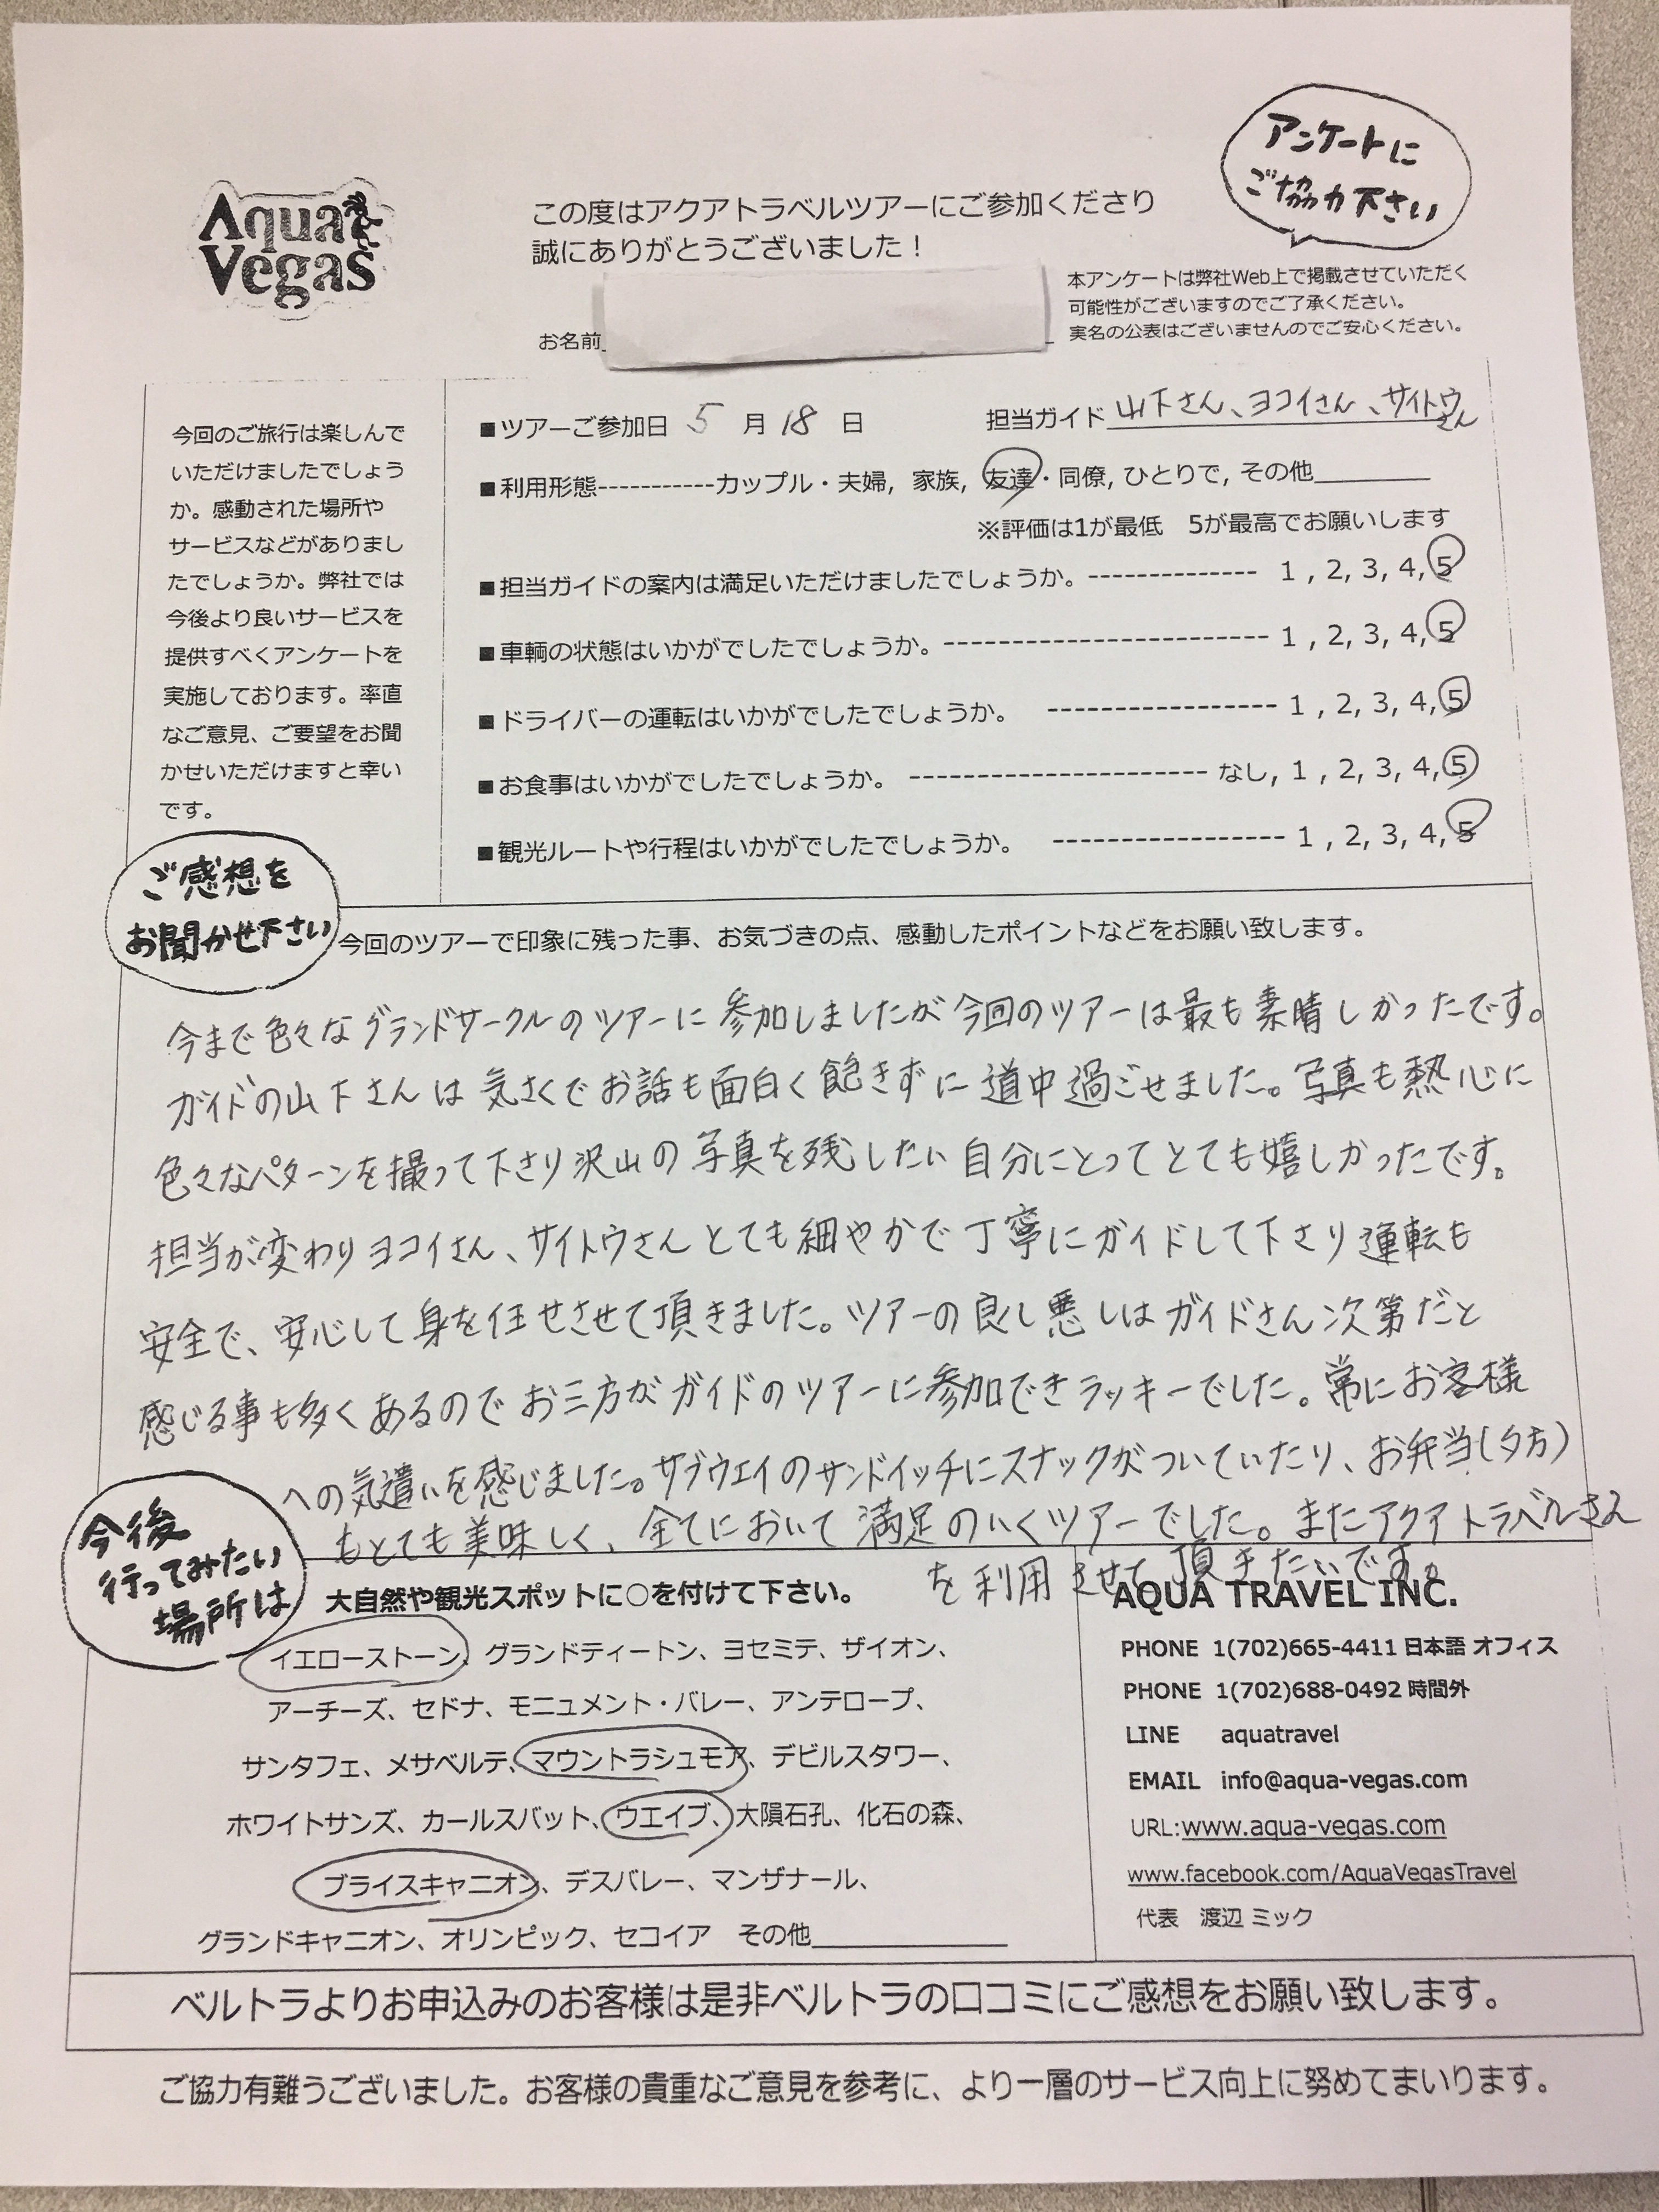 Aqua
Vegas
この度はアクアトラベルツアーにご参加くださり
誠にありがとうございました！
アンケートに
ご協力下さい
本アンケートは弊社Web上で掲載させていただく
可能性がございますのでご了承ください。
実名の公表はございませんのでご安心ください。
お名前
今回のご旅行は楽しんで
いただけましたでしょう
か。感動された場所や
サービスなどがありまし
たでしょうか。弊社では
今後より良いサービスを
提供すべくアンケートを
実施しております。率直
なご意見、ご要望をお聞
かせいただけますと幸い
です。
■ツアーご参加日 5 月 18 日 担当ガイド 山下さん、ヨコイさん、サイトウ
さん
■利用形態-----------カップル・夫婦, 家族, 友達・同僚, ひとりで, その他________
※評価は1が最低 5が最高でお願いします
■担当ガイドの案内は満足いただけましたでしょうか。-------------- 1 , 2, 3, 4, 5
■車輌の状態はいかがでしたでしょうか。------------------------ 1 , 2, 3, 4, 5
■ドライバーの運転はいかがでしたでしょうか。 ----------------- 1 , 2, 3, 4, 5
■お食事はいかがでしたでしょうか。 ---------------------- なし, 1 , 2, 3, 4, 5
■観光ルートや行程はいかがでしたでしょうか。 ----------------- 1 , 2, 3, 4, 5
ご感想を
お聞かせ下さい
今回のツアーで印象に残った事、お気づきの点、感動したポイントなどをお願い致します。
今まで色々なグランドサークルのツアーに参加しましたが今回のツアーは最も素晴しかったです。
ガイドの山下さんは気さくでお話も面白く飽きずに道中過ごせました。写真も熱心に
色々なパターンを撮って下さり沢山の写真を残したい自分にとってとても嬉しかったです。
担当が変わりヨコイさん、サイトウさんとても細やかで丁寧にガイドして下さり運転も
安全で、安心して身を任せさせて頂きました。ツアーの良し悪しはガイドさん次第だと
感じる事も多くあるのでお三方がガイドのツアーに参加できラッキーでした。常にお客様
への気遣いを感じました。サブウエイのサンドイッチにスナックがついていたり、お弁当(夕方)
もとても美味しく、全てにおいて満足のいくツアーでした。またアクアトラベルさん
を利用させて頂きたいです。
今後
行ってみたい
場所は
大自然や観光スポットに○を付けて下さい。
イエローストーン、グランドティートン、ヨセミテ、ザイオン、
アーチーズ、セドナ、モニュメント・バレー、アンテロープ、
サンタフェ、メサベルテ、マウントラシュモア、デビルスタワー、
ホワイトサンズ、カールスバット、ウエイブ、大隕石孔、化石の森、
ブライスキャニオン、デスバレー、マンザナール、
グランドキャニオン、オリンピック、セコイア その他______________
AQUA TRAVEL INC.
PHONE 1(702)665-4411 日本語 オフィス
PHONE 1(702)688-0492 時間外
LINE aquatravel
EMAIL info@aqua-vegas.com
URL:www.aqua-vegas.com
www.facebook.com/AquaVegasTravel
代表 渡辺 ミック
ベルトラよりお申込みのお客様は是非ベルトラの口コミにご感想をお願い致します。
ご協力有難うございました。お客様の貴重なご意見を参考に、より一層のサービス向上に努めてまいります。